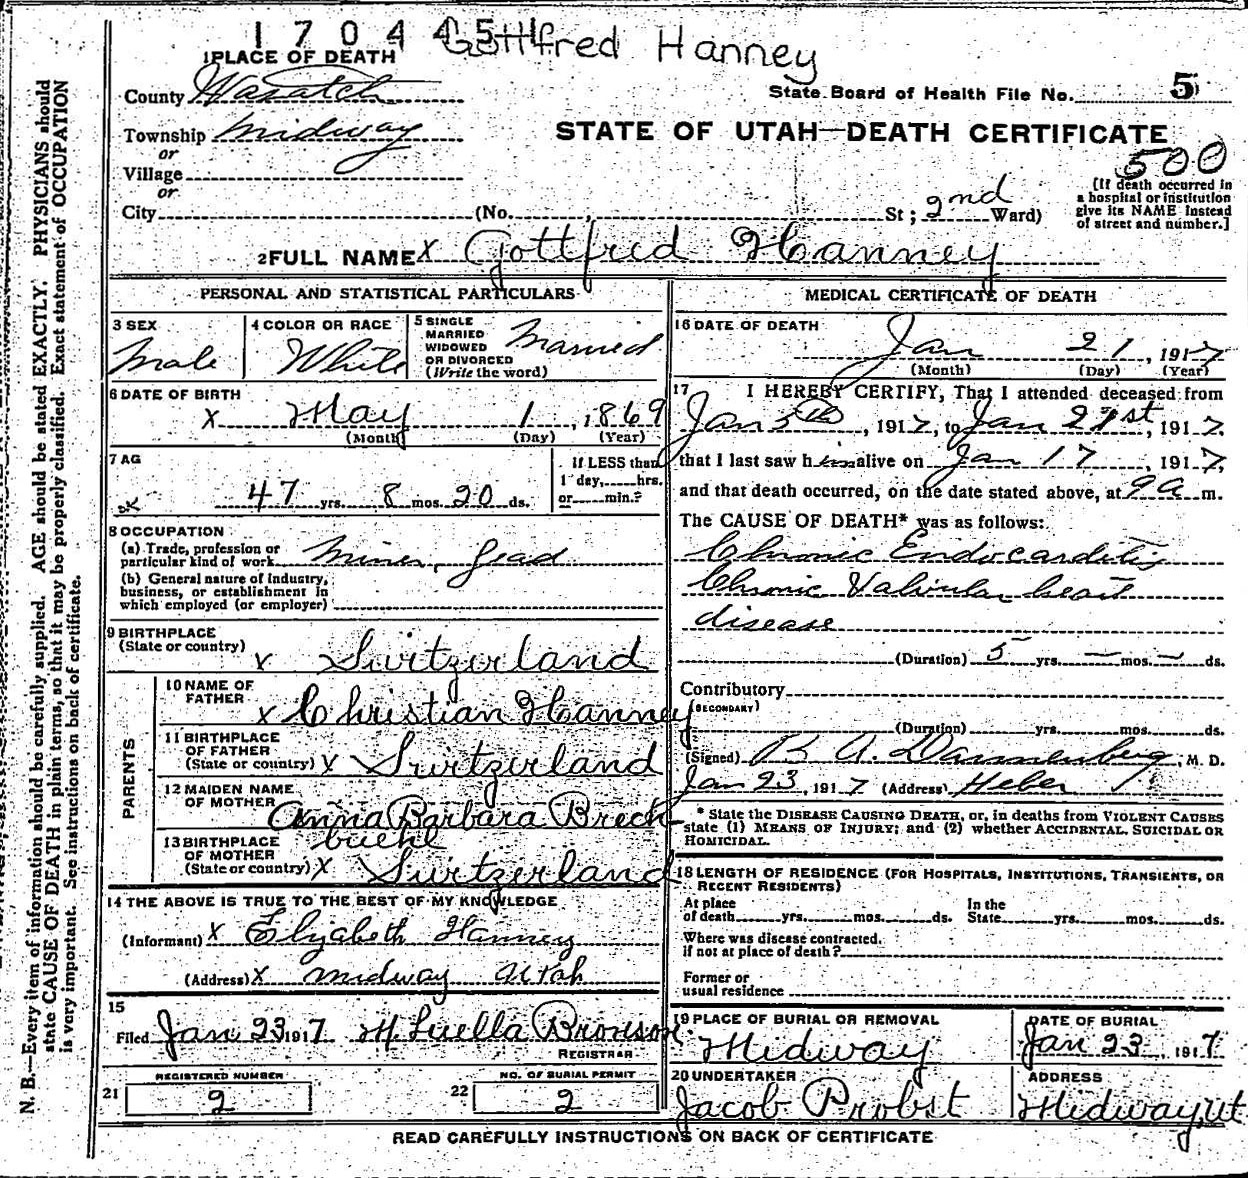 1704451
Gottfred Hanney
1 PLACE OF DEATH
County Wasatch
State Board of Health File No. 5
Township Midway
STATE OF UTAH—DEATH CERTIFICATE
or
Village
500
or
City (No. , St; 2nd Ward)
[If death occurred in
a hospital or institution
give its NAME instead
of street and number.]
2 FULL NAME X Gottfred Hanney
PERSONAL AND STATISTICAL PARTICULARS
3 SEX
Male
4 COLOR OR RACE
White
5 SINGLE
MARRIED
WIDOWED
OR DIVORCED
(Write the word)
Married
6 DATE OF BIRTH
X May 1, 1869
(Month) (Day) (Year)
7 AG
X 47 yrs. 8 mos. 20 ds.
If LESS than
1 day, hrs.
or min.?
8 OCCUPATION
(a) Trade, profession or
particular kind of work Miner, Lead
(b) General nature of Industry,
business, or establishment in
which employed (or employer)
9 BIRTHPLACE
(State or country) X Switzerland
PARENTS
10 NAME OF
FATHER
X Christian Hanney
11 BIRTHPLACE
OF FATHER
(State or country) X Switzerland
12 MAIDEN NAME
OF MOTHER
Anna Barbara Brech
buehl
13 BIRTHPLACE
OF MOTHER
(State or country) X Switzerland
14 THE ABOVE IS TRUE TO THE BEST OF MY KNOWLEDGE
(Informant) X Elizabeth Hanney
(Address) X Midway Utah
15
Filed Jan 23 1917 M. Luella Bronson
REGISTRAR
REGISTERED NUMBER
21 2
NO. OF BURIAL PERMIT
22 2
MEDICAL CERTIFICATE OF DEATH
16 DATE OF DEATH
Jan 21, 1917
(Month) (Day) (Year)
17 I HEREBY CERTIFY, That I attended deceased from
Jan 5th, 1917, to Jan 21st, 1917.
that I last saw him alive on Jan 17, 1917,
and that death occurred, on the date stated above, at 9 a m.
The CAUSE OF DEATH* was as follows:
Chronic Endocarditis
Chronic Valvular heart
disease
(Duration) 5 yrs. — mos. — ds.
Contributory
(SECONDARY)
(Duration) yrs. mos. ds.
(Signed) B. A. Dannenberg, M. D.
Jan 23, 1917 (Address) Heber
* State the DISEASE CAUSING DEATH, or, in deaths from VIOLENT CAUSES
state (1) MEANS OF INJURY; and (2) whether ACCIDENTAL, SUICIDAL OR
HOMICIDAL.
18 LENGTH OF RESIDENCE (FOR HOSPITALS, INSTITUTIONS, TRANSIENTS, OR
RECENT RESIDENTS)
At place
of death yrs. mos. ds.
In the
State yrs. mos. ds.
Where was disease contracted.
if not at place of death?
Former or
usual residence
19 PLACE OF BURIAL OR REMOVAL
Midway
DATE OF BURIAL
Jan 23, 1917
20 UNDERTAKER
Jacob Probst
ADDRESS
Midway, Ut
READ CAREFULLY INSTRUCTIONS ON BACK OF CERTIFICATE
N. B.—Every item of information should be carefully supplied. AGE should be stated EXACTLY. PHYSICIANS should
state CAUSE OF DEATH in plain terms, so that it may be properly classified. Exact statement of OCCUPATION
is very important. See instructions on back of certificate.